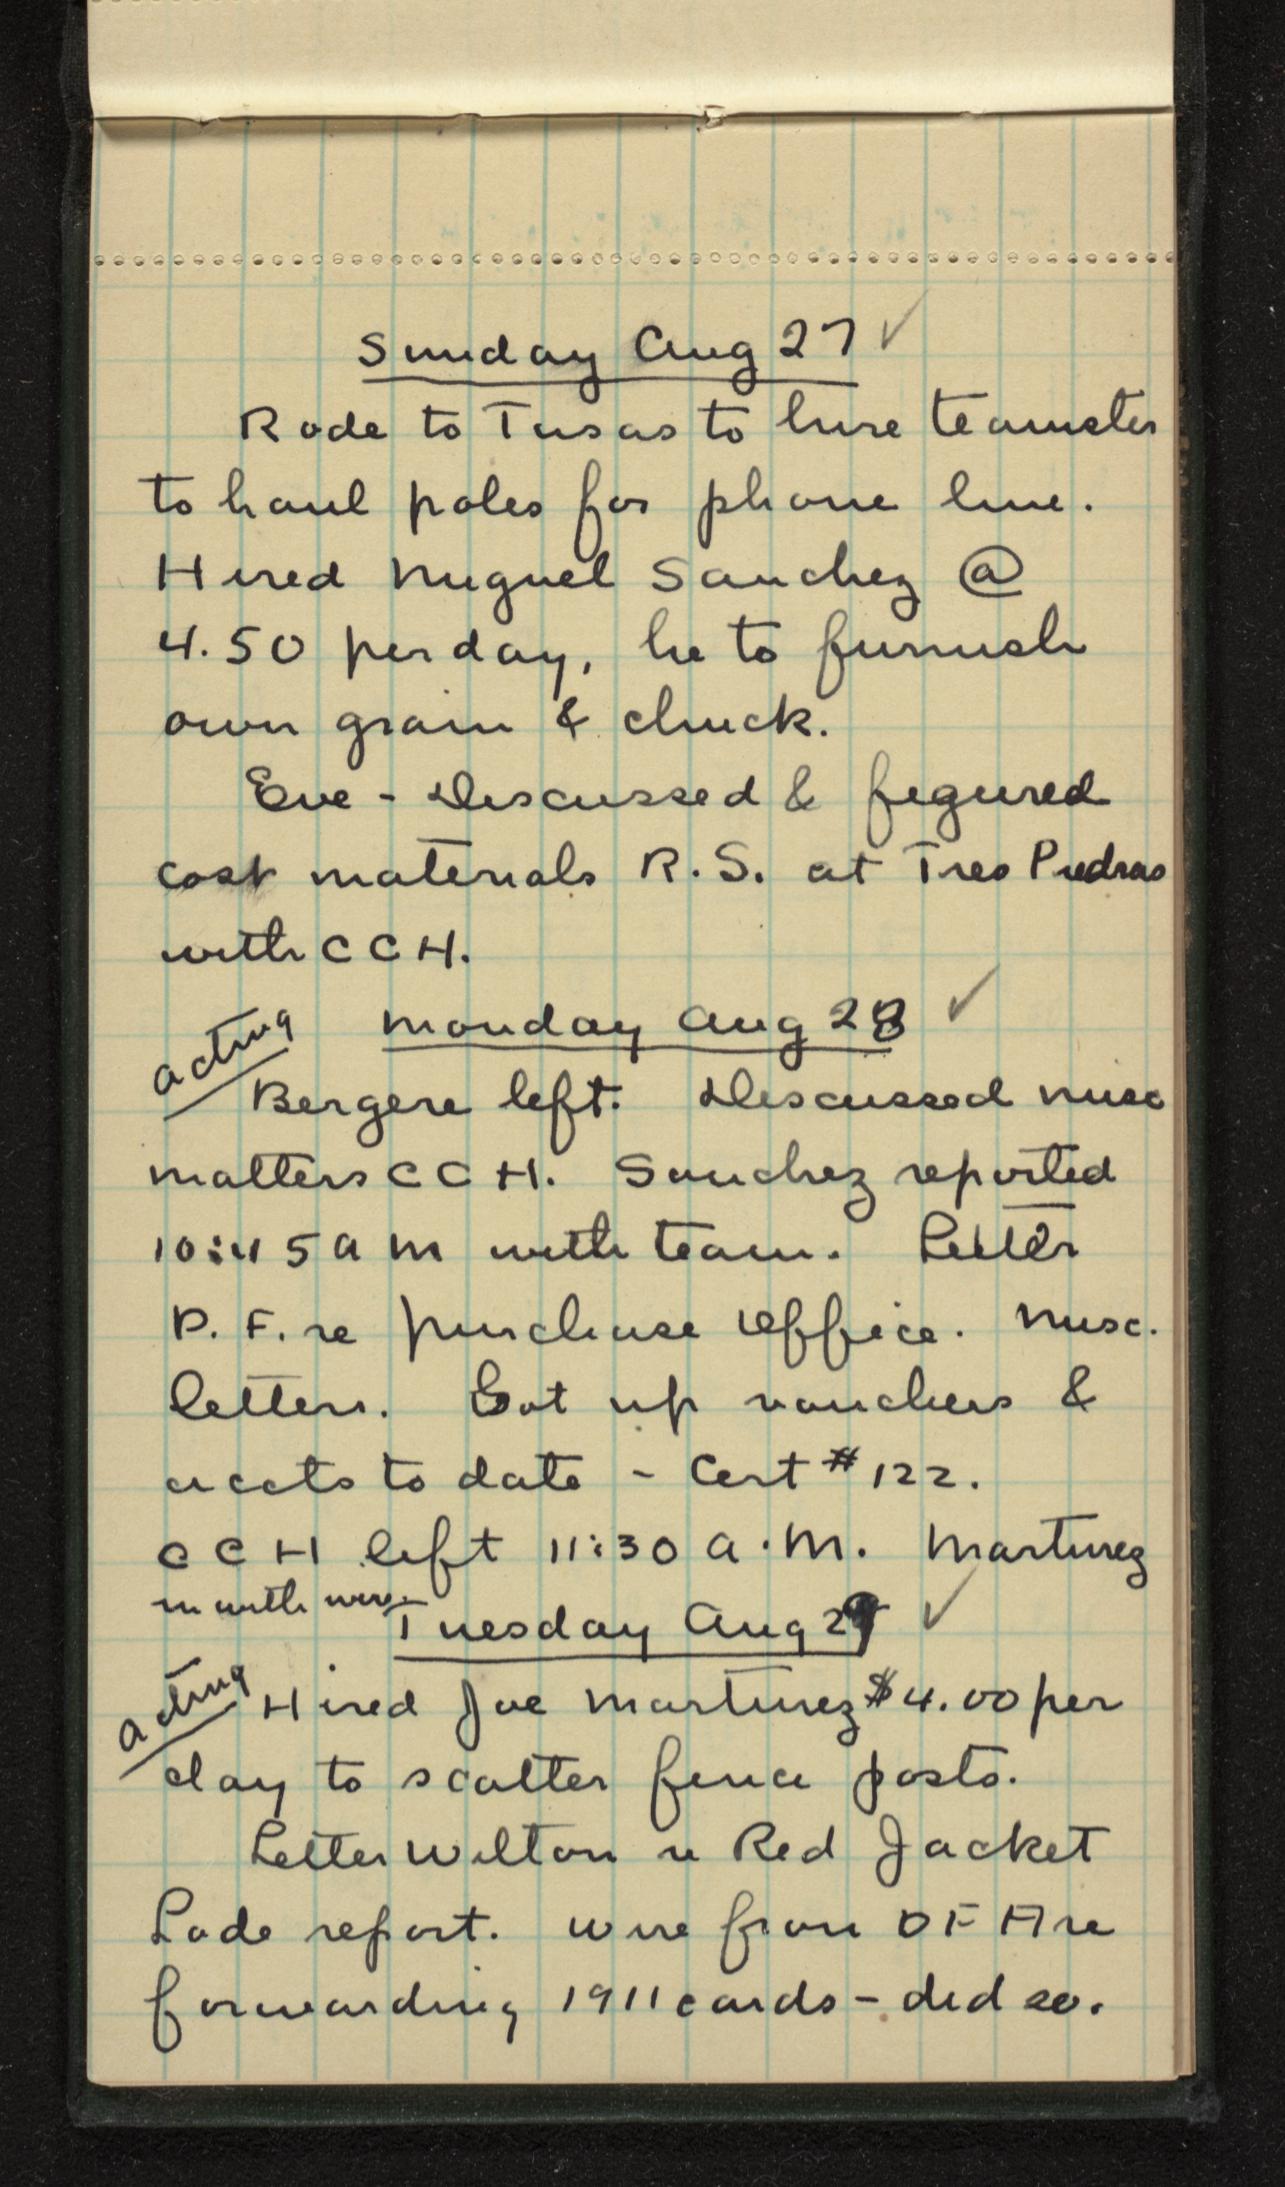 Sunday Aug 27 ✓
Rode to Tusas to hire teamster
to haul poles for phone line.
Hired Miguel Sanchez @
4.50 per day, he to furnish
own grain & chuck.
Eve - Discussed & figured
cost materials R.S. at Tres Piedras
with CCH.
acting
Monday Aug 28 ✓
Bergere left. Discussed misc
matters CCH. Sanchez reported
10:45 AM with team. Letter
D.F. re purchase office. Misc.
letters. Got up vouchers &
accts to date - Cert #122.
CCH left 11:30 A.M. Martinez
in with wire.
Tuesday Aug 29 ✓
acting
Hired Joe Martinez $4.00 per
day to scatter fence posts.
Letter Wilton re Red Jacket
Lode report. Wire from DFA re
forwarding 1911 cards - did so.